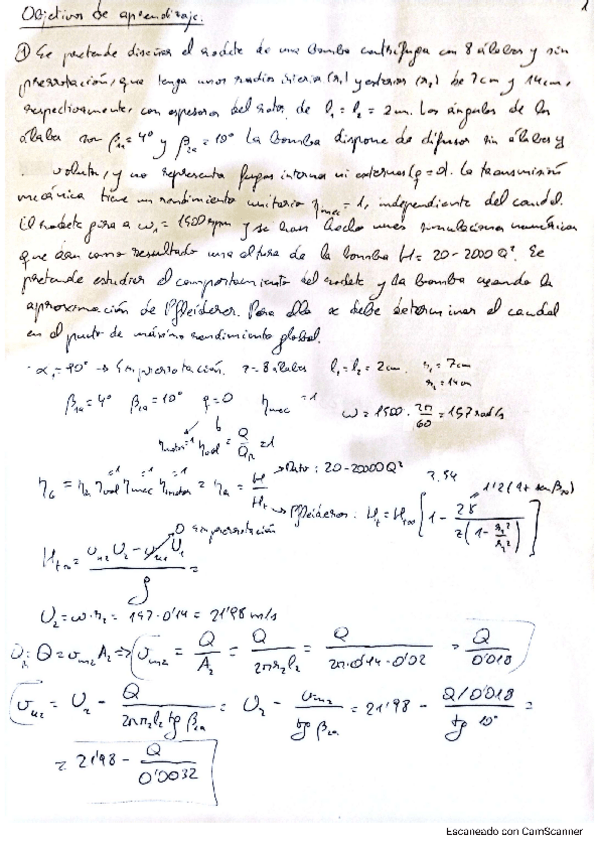 Objetivos de aprendizaje: 1
① Se pretende diseñar el rodete de una bomba centrífuga con 8 álabes y sin
prerrotación, que tenga unos radios interior (r₁) y exterior (r₂) de 7cm y 14cm,
respectivamente, con espesores del rotor de l₁ = l₂ = 2cm. Los ángulos de los
álabes son β₁ₐ = 4° y β₂ₐ = 10° La bomba dispone de difusor sin álabes y
voluta, y no representa fugas internas ni externas (q=0). La transmisión
mecánica tiene un rendimiento unitario η_mec = 1, independiente del caudal.
El rodete gira a ω₁ = 1500 rpm y se han hecho unas simulaciones numéricas
que dan como resultado una altura de la bomba H = 20 - 2000 Q². Se
pretende estudiar el comportamiento del rodete y la bomba usando la
aproximación de Pfleiderer. Para ello se debe determinar el caudal
en el punto de máximo rendimiento global.
α₁ = 90° → Sin prerrotación. z = 8 álabes l₁ = l₂ = 2cm. r₁ = 7cm
r₂ = 14cm
β₁ₐ = 4° β₂ₐ = 10° q = 0 η_mec = 1 ω = 1500 · 2π/60 = 157 rad/s
η_vol = Q/Q_R = 1
→ Dato: 20 - 20000 Q² 1'2(1+ sen β₂ₐ)
η_G = η_h η_vol η_mec η_motor = η_h = H/H_t → Pfleiderer: H_t = H_t∞ [1 - 2γ / z(1 - r₁²/r₂²)]
0 sin prerrotación
H_t∞ = (v_u2 U₂ - v_u1 U₁) / g =
U₂ = ω·r₂ = 157·0'14 = 21'98 m/s
Q = v_m2 A₂ ⇒ v_m2 = Q/A₂ = Q/2πr₂l₂ = Q/2π·0'14·0'02 = Q/0'018
v_u2 = U₂ - Q/2πr₂l₂ tg β₂ₐ = U₂ - v_m2/tg β₂ₐ = 21'98 - Q/0'018 / tg 10° =
= 21'98 - Q/0'0032
Escaneado con CamScanner